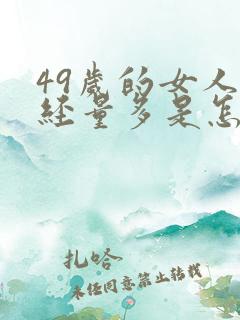 49岁的女人
经量多是怎
扎哈
未经同意禁止转载